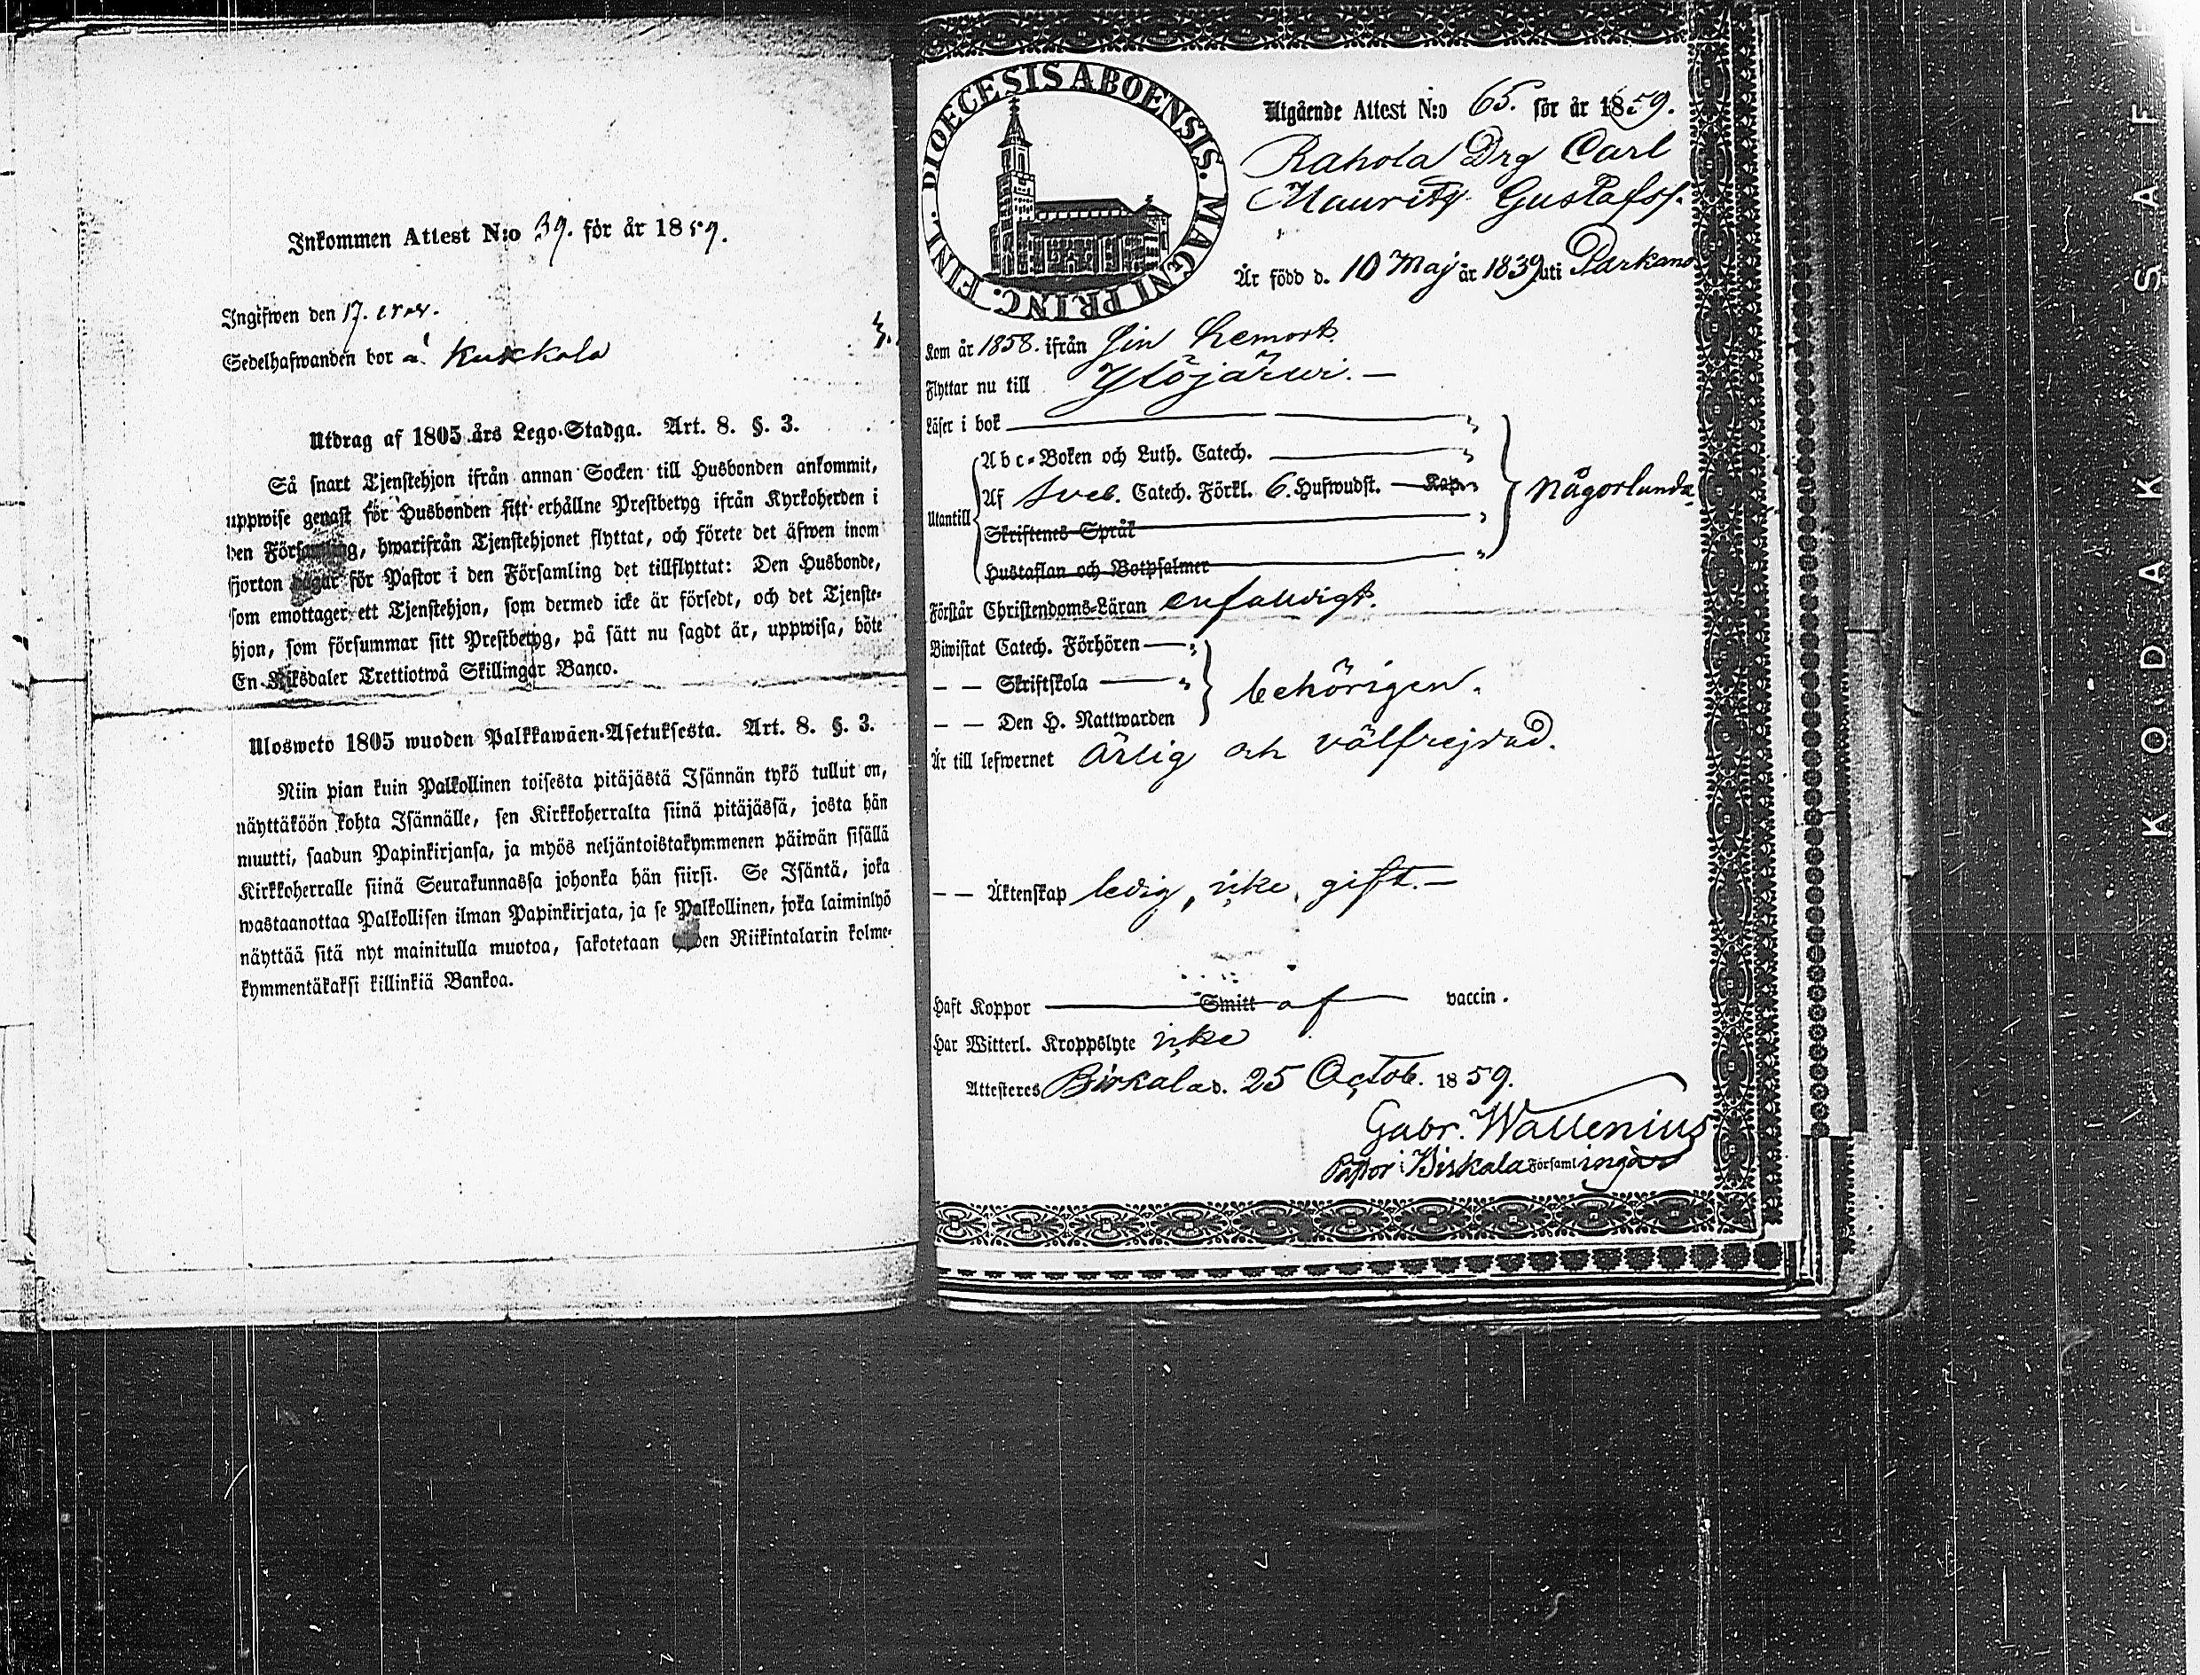 Inkommen Attest N:o 39. för år 1859.
Ingifwen den 17.
Sedelhafwanden bor å Kukkola
Utdrag af 1805 års Lego-Stadga. Art. 8. §. 3.
Så snart Tjenstehjon ifrån annan Socken till Husbonden ankommit,
uppwise genast för Husbonden sitt erhållne Prestbetyg ifrån Kyrkoherden i
den Församling, hwarifrån Tjenstehjonet flyttat, och förete det äfwen inom
fjorton dagar för Pastor i den Församling det tillflyttat: Den Husbonde,
som emottager ett Tjenstehjon, som dermed icke är försedt, och det Tjenste-
hjon, som försummar sitt Prestbetyg, på sätt nu sagdt är, uppwisa, böte
En Riksdaler Trettiotwå Skillingar Banco.
Ulosweto 1805 wuoden Palkkawäen-Asetuksesta. Art. 8. §. 3.
Niin pian kuin Palkollinen toisesta pitäjästä Isännän tykö tullut on,
näyttäköön kohta Isännälle, sen Kirkkoherralta siinä pitäjässä, josta hän
muutti, saadun Papinkirjansa, ja myös neljäntoistakymmenen päiwän sisällä
Kirkkoherralle siinä Seurakunnassa johonka hän siirsi. Se Isäntä, joka
wastaanottaa Palkollisen ilman Papinkirjata, ja se Palkollinen, joka laiminlyö
näyttää sitä nyt mainitulla muotoa, sakotetaan yhden Riikintalarin kolme-
kymmentäkaksi killinkiä Bankoa.
DIOECESIS ABOENSIS. MAGNI PRINC. FINL.
Utgående Attest N:o 65. för år 1859.
Rahola Drg Carl
Mauritz Gustafss.
Är född d. 10 Maj år 1839 uti Parkano
Kom år 1858. ifrån
Flyttar nu till Ylöjärwi. —
Läser i bok
Abc-Boken och Luth. Catech.
Utantill Af Sveb. Catech. Förkl. 6. Hufwudst. Kap. någorlunda
Skriftenes Språk
Hustaflan och Botpsalmer
Förstår Christendoms-Läran enfaldigt.
Biwistat Catech. Förhören
— — Skriftskola behörigen.
— — Den H. Nattwarden
Är till lefwernet Ärlig och välfrejdad.
— — Äktenskap ledig, icke gift. —
Haft Koppor Smitt af vaccin.
Har Witterl. Kroppslyte icke
Attesteres Birkala d. 25 Octob. 1859.
Gabr. Wallenius
Pastor i Birkala Församlingar
KODAK SAFE